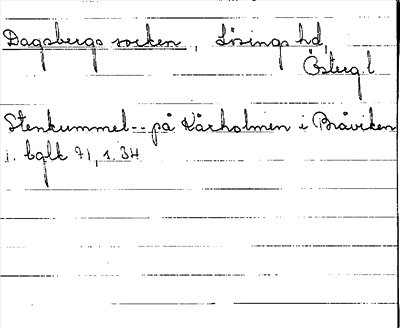 Dagsbergs socken, Lösings hd,
Österg.l
Stenkummel-- på Kårholmen i Bråviken
i. bglk 71, s. 34